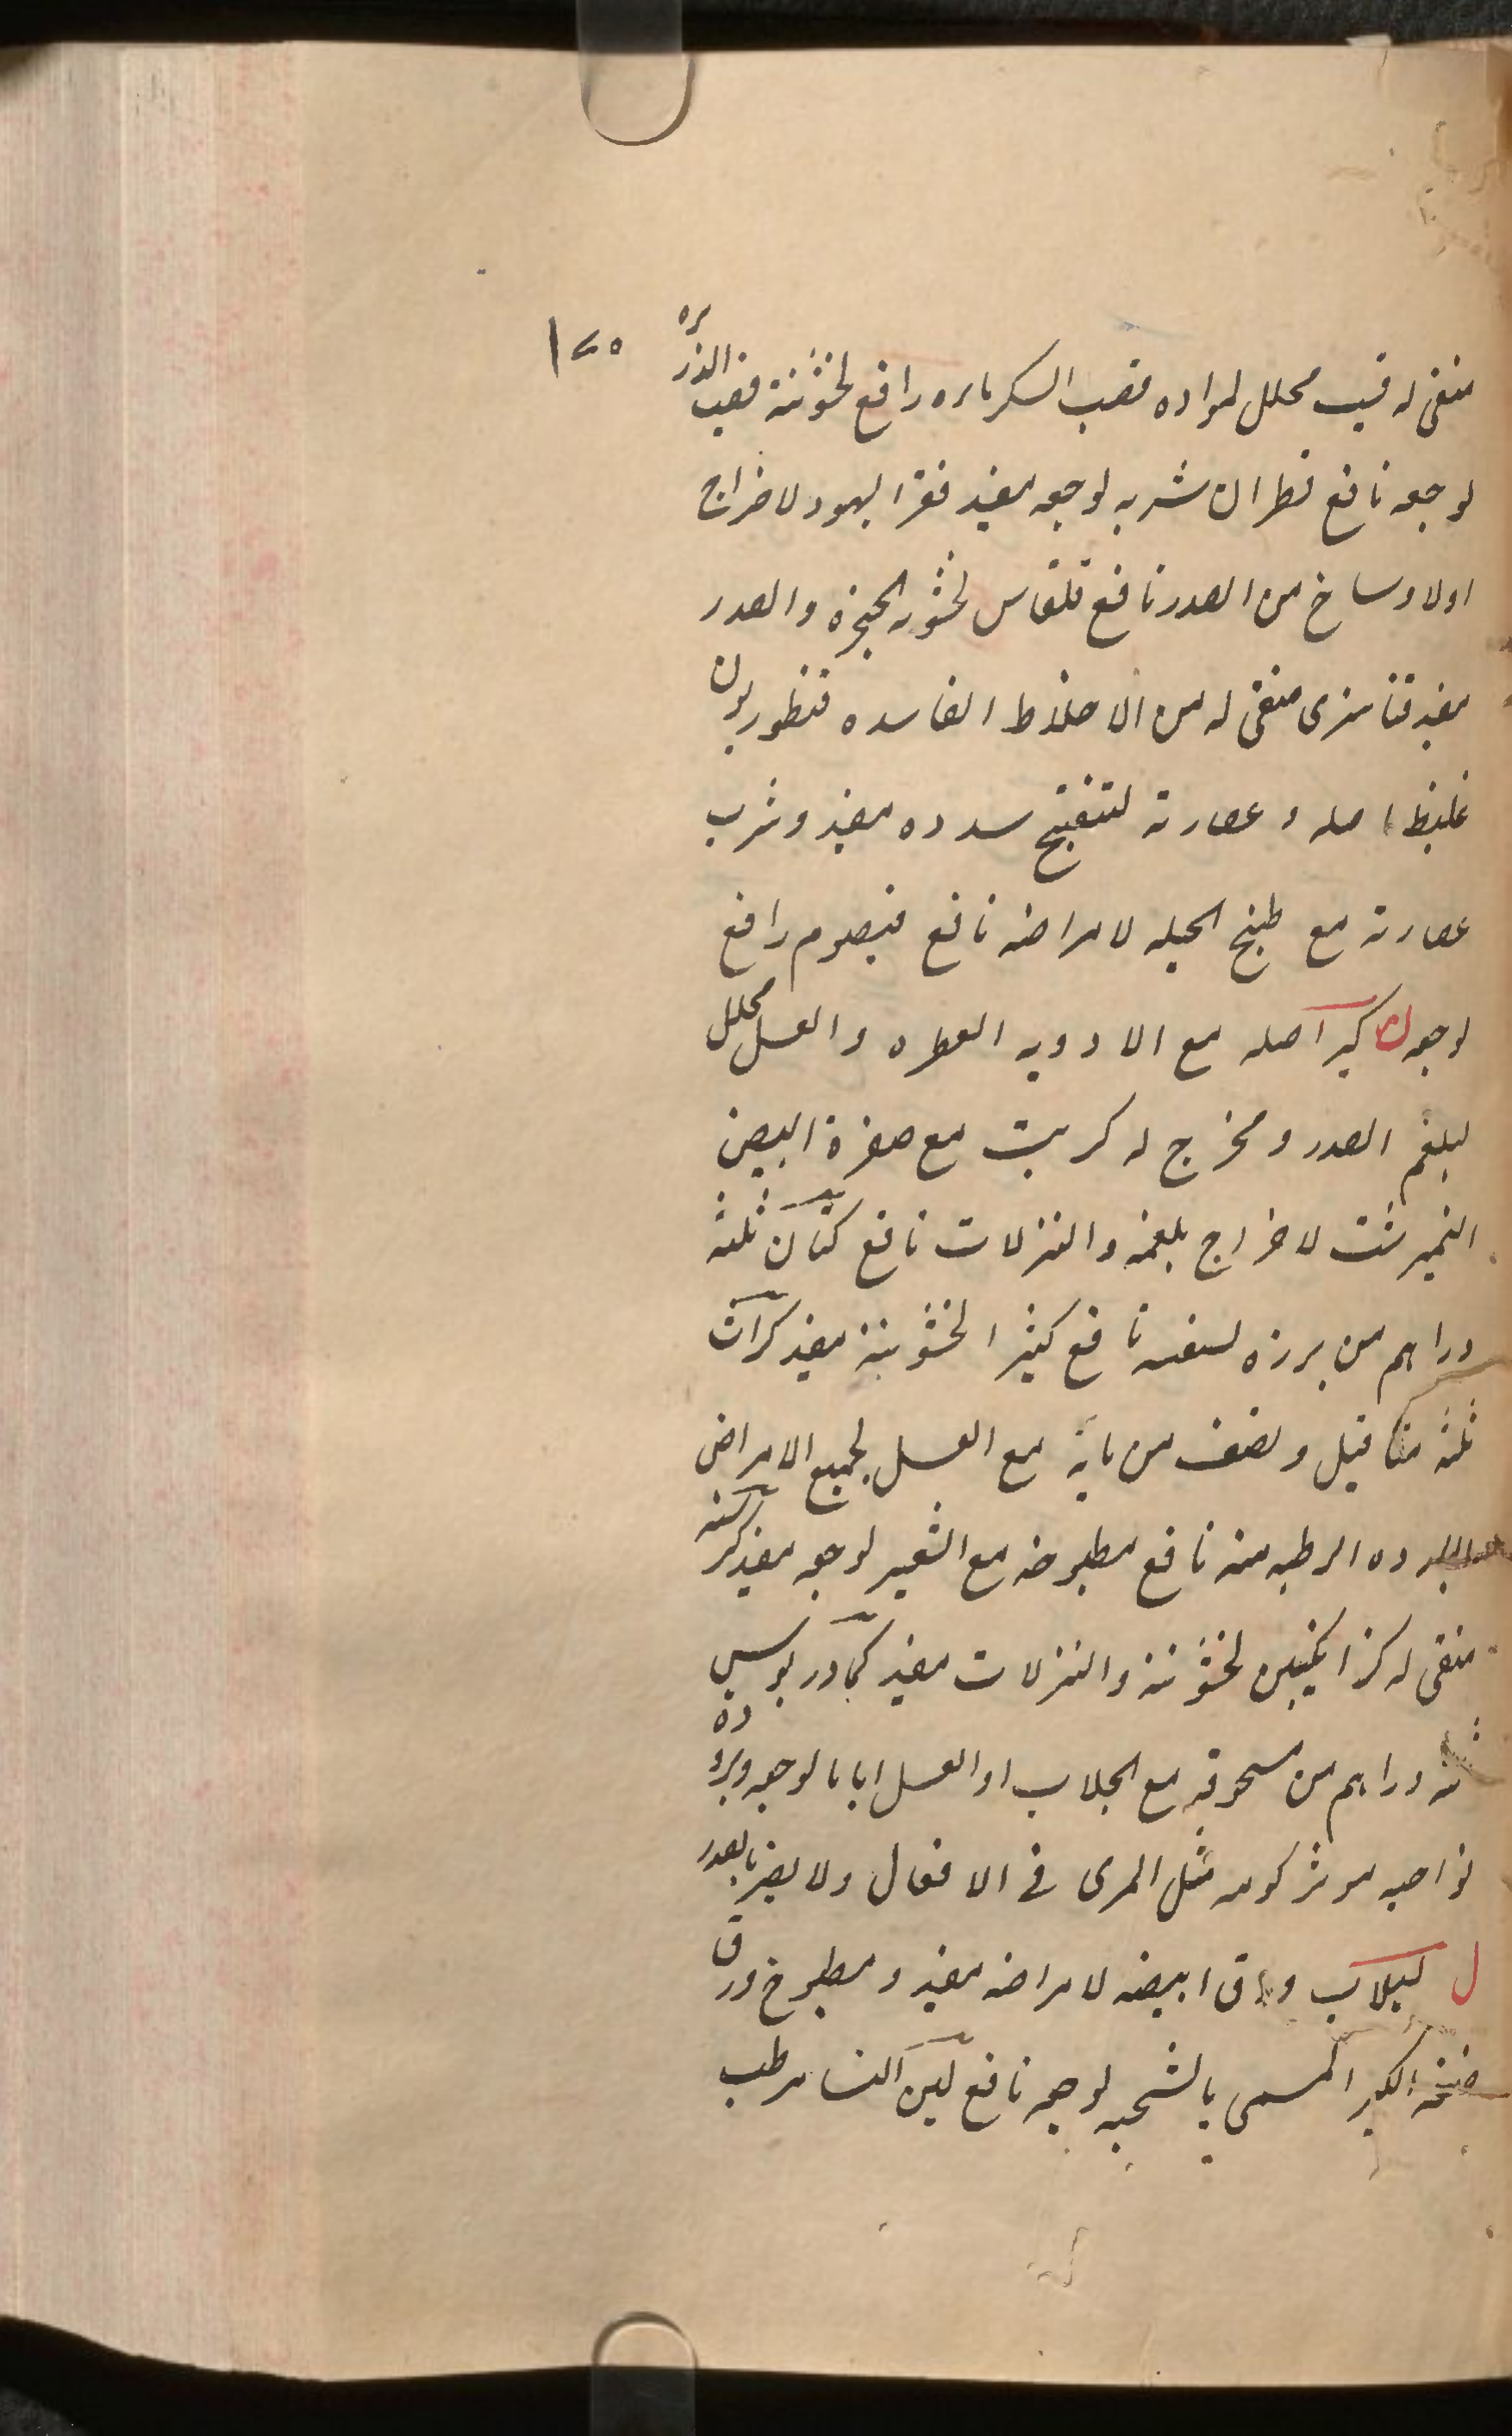 ١٢٥
منقى له قيب محلل لمواده قصب السكر ماءه رافع لخشونته قصب الذريره
لوجعه نافع قطران شربه لوجعه مفيد قفر اليهود لاخراج
اولاوساخ من الصدر نافع قلقاس لخشونه الحنجرة والصدر
مفيد قنا منقى له من الاخلاط الفاسده قنطوريون
غليظ اصله و عصارته لتفتيح سدده مفيد وشرب
عصارته مع طبخ الحلبه لامراضه نافع قيصوم رافع
لوجعه ك كبر اصله مع الادويه العطره والعسل محلل
لبلغم الصدر ومخرج له كبريت مع صفرة البيض
النميرشت لاخراج بلغمه والنزلات نافع كتان ثلثه
دراهم من بزره لسعفه نافع كثيرا لخشونته مفيد كراث
ثلثه مثاقيل ونصف من مايه مع العسل لجميع الامراض
البارده الرطبه منه نافع مطبوخه مع الشعير لوجعه مفيد كرسنه
منقى له كزانكبين لخشونته والنزلات مفيد كمادريوس
ثلثه دراهم من مسحوقه مع الجلاب او العسل اياما لوجعه وبروده
نواحيه موثر كومه مثل المرى فى الافعال ولا يضر بالصدر
ل لبلاب وراق ابيضه لامراضه مفيد ومطبوخ ورق
ضخمه الكبير المسمى بالشحيه لوجعه نافع لبن النسا مرطب